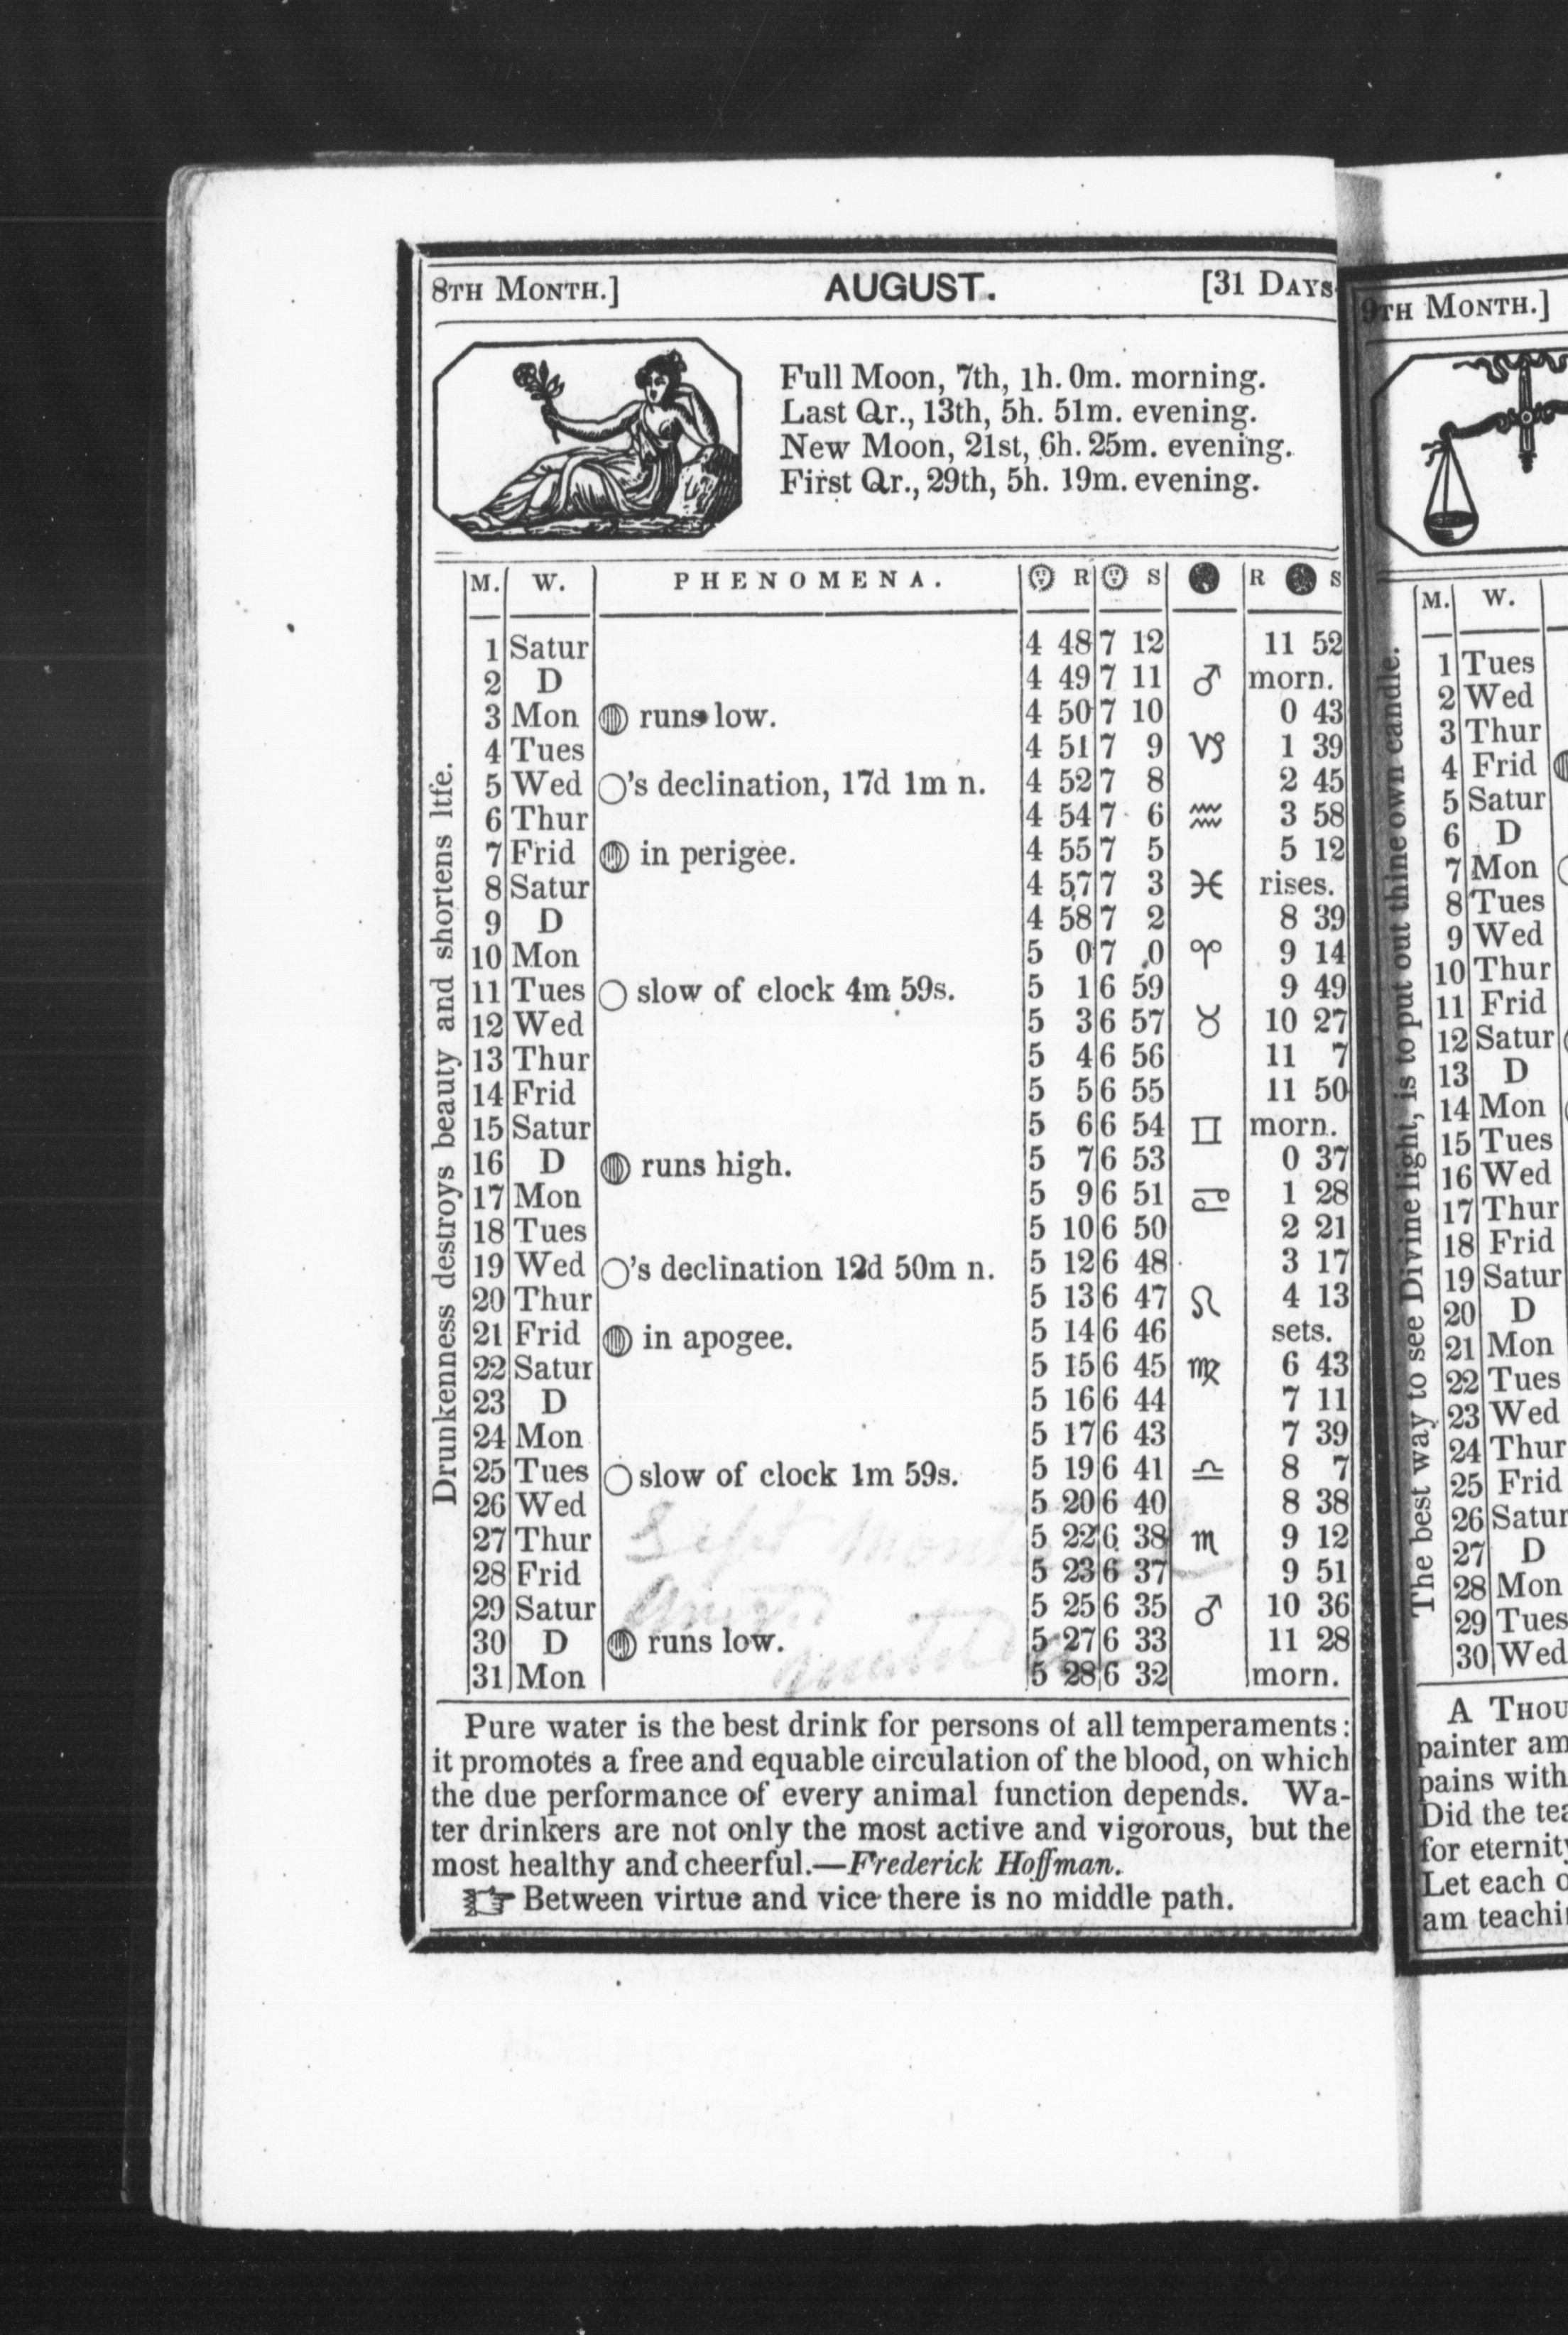 8TH MONTH.] AUGUST. [31 DAYS
Full Moon, 7th, 1h. 0m. morning.
Last Qr., 13th, 5h. 51m. evening.
New Moon, 21st, 6h. 25m. evening.
First Qr., 29th, 5h. 19m. evening.
Drunkenness destroys beauty and shortens ltfe.
M. W. PHENOMENA. R S R S
1 Satur 4 48 7 12 11 52
2 D 4 49 7 11 ♂ morn.
3 Mon runs low. 4 50 7 10 0 43
4 Tues 4 51 7 9 ♑ 1 39
5 Wed ○'s declination, 17d 1m n. 4 52 7 8 2 45
6 Thur 4 54 7 6 ♒ 3 58
7 Frid in perigee. 4 55 7 5 5 12
8 Satur 4 57 7 3 ♓ rises.
9 D 4 58 7 2 8 39
10 Mon 5 0 7 0 ♈ 9 14
11 Tues ○ slow of clock 4m 59s. 5 1 6 59 9 49
12 Wed 5 3 6 57 ♉ 10 27
13 Thur 5 4 6 56 11 7
14 Frid 5 5 6 55 11 50
15 Satur 5 6 6 54 ♊ morn.
16 D runs high. 5 7 6 53 0 37
17 Mon 5 9 6 51 ♋ 1 28
18 Tues 5 10 6 50 2 21
19 Wed ○'s declination 12d 50m n. 5 12 6 48 3 17
20 Thur 5 13 6 47 ♌ 4 13
21 Frid in apogee. 5 14 6 46 sets.
22 Satur 5 15 6 45 ♍ 6 43
23 D 5 16 6 44 7 11
24 Mon 5 17 6 43 7 39
25 Tues ○ slow of clock 1m 59s. 5 19 6 41 ♎ 8 7
26 Wed 5 20 6 40 8 38
27 Thur 5 22 6 38 ♏ 9 12
28 Frid 5 23 6 37 9 51
29 Satur 5 25 6 35 ♂ 10 36
30 D runs low. 5 27 6 33 11 28
31 Mon 5 28 6 32 morn.
Sept
Pure water is the best drink for persons of all temperaments:
it promotes a free and equable circulation of the blood, on which
the due performance of every animal function depends. Wa-
ter drinkers are not only the most active and vigorous, but the
most healthy and cheerful.—Frederick Hoffman.
☞ Between virtue and vice there is no middle path.
9TH MONTH.]
The best way to see Divine light, is to put out thine own candle.
M. W.
1 Tues
2 Wed
3 Thur
4 Frid
5 Satur
6 D
7 Mon
8 Tues
9 Wed
10 Thur
11 Frid
12 Satur
13 D
14 Mon
15 Tues
16 Wed
17 Thur
18 Frid
19 Satur
20 D
21 Mon
22 Tues
23 Wed
24 Thur
25 Frid
26 Satur
27 D
28 Mon
29 Tues
30 Wed
A THOU
painter am
pains with
Did the tea
for eternity
Let each o
am teachi